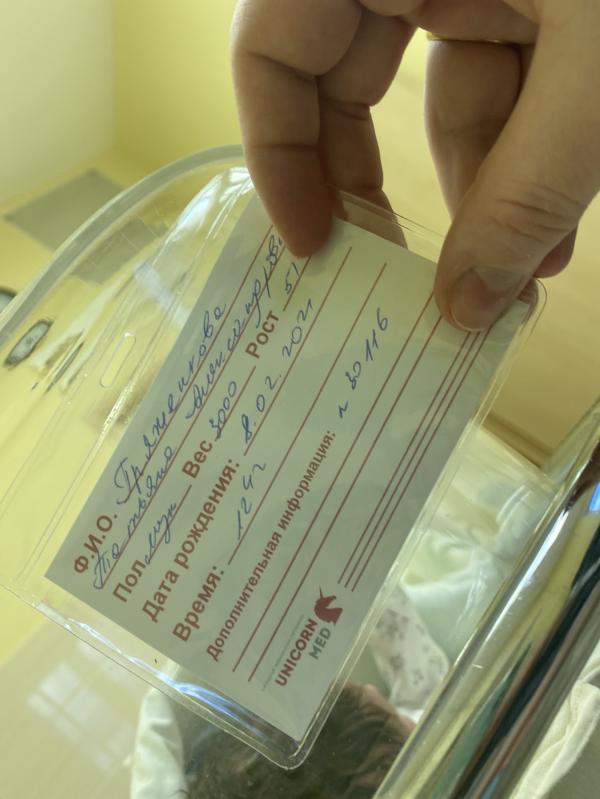 Ф.И.О. Пряженкова
Татьяна Александровна
Пол муж Вес 3000 Рост 51
Дата рождения: 8.02.2021
Время: 12 42
Дополнительная информация: № 30116
UNICORN
MED